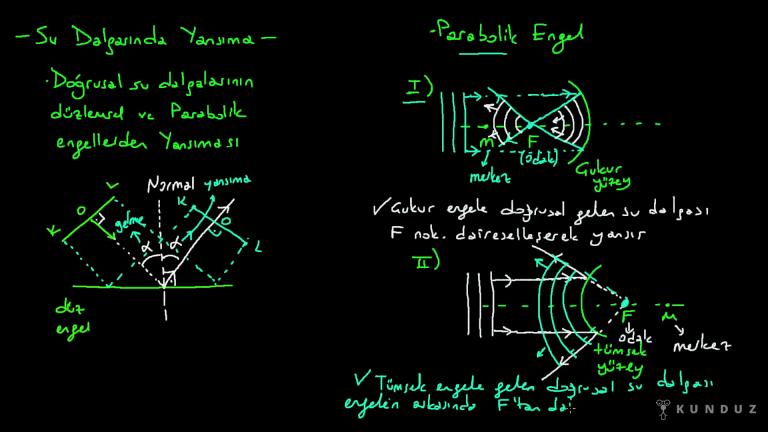 - Su Dalgasında Yansıma -
• Doğrusal su dalgalarının
düzlemsel ve Parabolik
engellerden Yansıması
Normal yansıma
L
K
O
gelme
K
O
α α
L
düz
engel
- Parabolik Engel
I)
M F
(odak)
merkez
Çukur
yüzey
✓ Çukur engele doğrusal gelen su dalgası
F nok. daireselleşerek yansır
II)
F M
odak
merkez
tümsek
yüzey
✓ Tümsek engele gelen doğrusal su dalgası
engelin arkasında F'tan dai
KUNDUZ